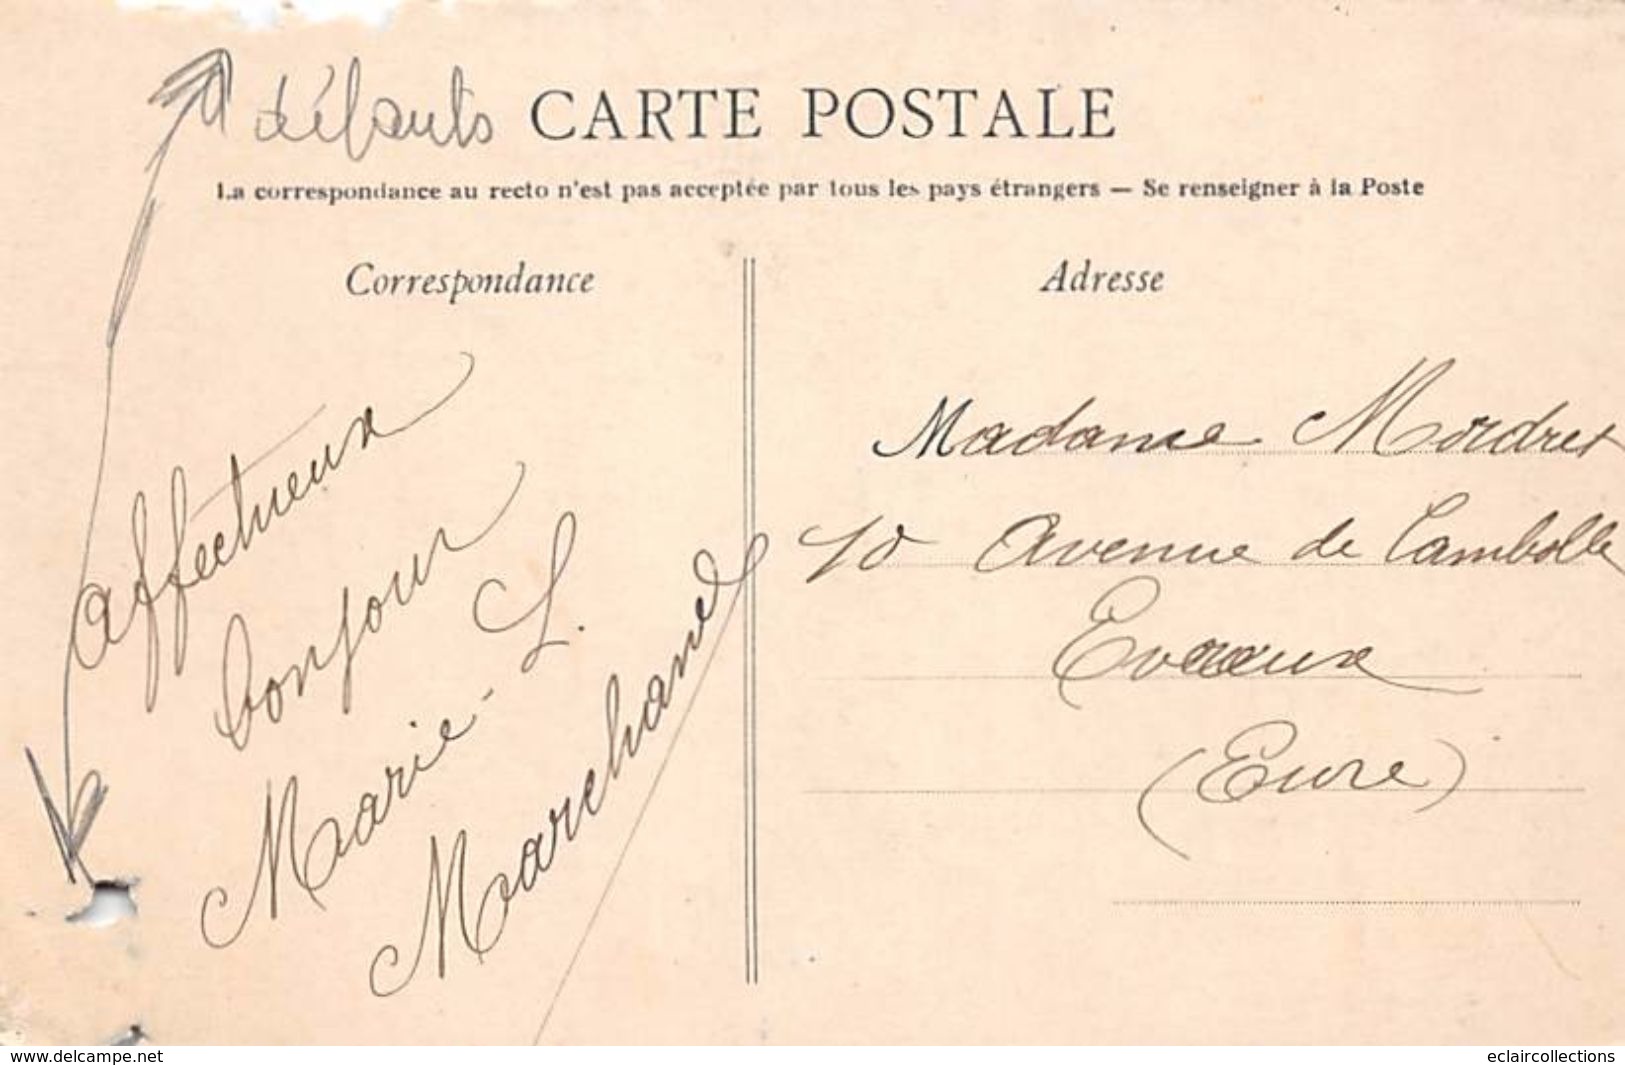 défauts
CARTE POSTALE
La correspondance au recto n'est pas acceptée par tous les pays étrangers — Se renseigner à la Poste
Correspondance
affectueux
bonjour
Marie - L.
Marchand
Adresse
Madame Mordret
10 Avenue de Cambolle
Evreux
(Eure)
www.delcampe.net
eclaircollections